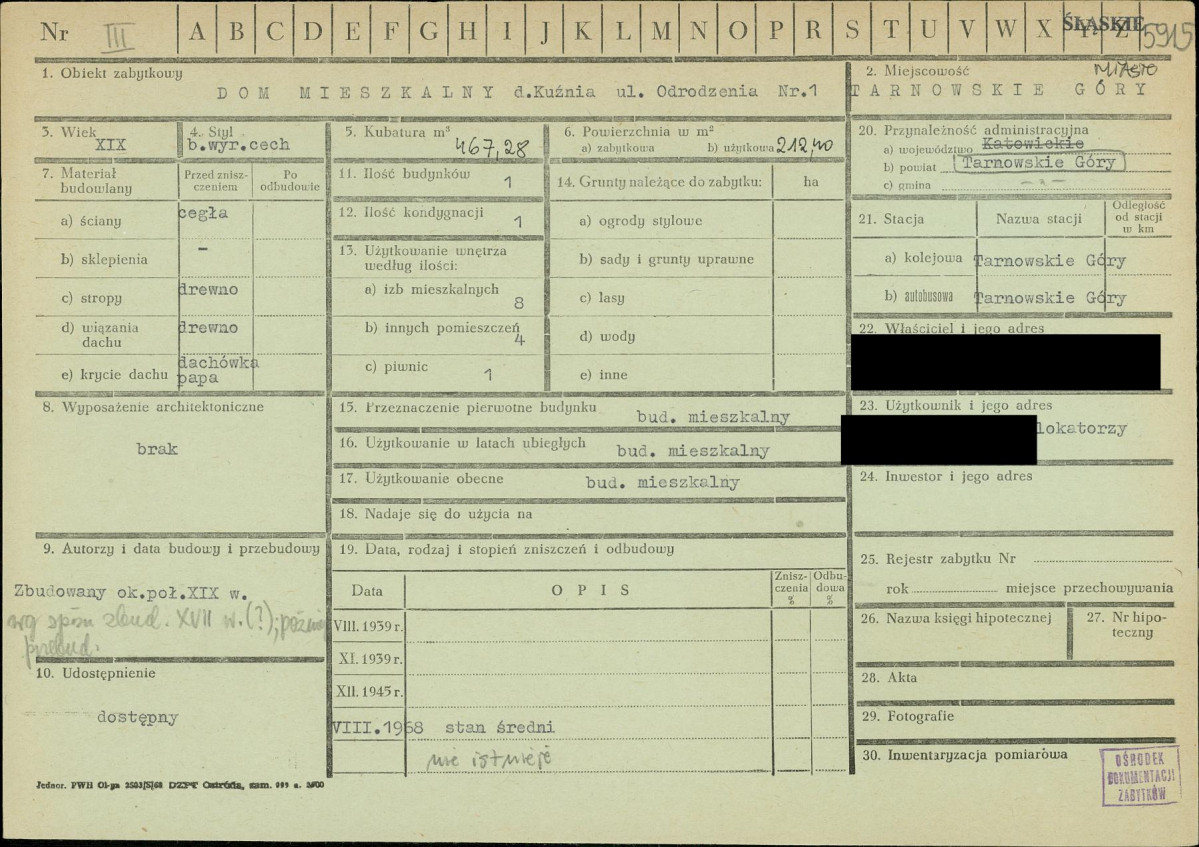 Nr III A B C D E F G H I J K L M N O P R S T U V W X Y Z ŚLĄSKIE 5915
1. Obiekt zabytkowy
DOM MIESZKALNY d.Kuźnia ul. Odrodzenia Nr.1
2. Miejscowość MIASTO
TARNOWSKIE GÓRY
3. Wiek
XIX
4. Styl
b.wyr.cech
5. Kubatura m³
467,28
6. Powierzchnia w m²
a) zabytkowa b) użytkowa 212,40
20. Przynależność administracyjna
a) województwo Katowickie
b) powiat Tarnowskie Góry
c) gmina - " -
7. Materiał budowlany
Przed zniszczeniem
Po odbudowie
a) ściany cegła
b) sklepienia -
c) stropy drewno
d) wiązania dachu drewno
e) krycie dachu dachówka papa
11. Ilość budynków 1
12. Ilość kondygnacji 1
13. Użytkowanie wnętrza
według ilości:
a) izb mieszkalnych 8
b) innych pomieszczeń 4
c) piwnic 1
14. Grunty należące do zabytku: ha
a) ogrody stylowe
b) sady i grunty uprawne
c) lasy
d) wody
e) inne
21. Stacja Nazwa stacji Odległość od stacji w km
a) kolejowa Tarnowskie Góry
b) autobusowa Tarnowskie Góry
22. Właściciel i jego adres
8. Wyposażenie architektoniczne
brak
15. Przeznaczenie pierwotne budynku bud. mieszkalny
16. Użytkowanie w latach ubiegłych bud. mieszkalny
17. Użytkowanie obecne bud. mieszkalny
18. Nadaje się do użycia na
23. Użytkownik i jego adres
lokatorzy
24. Inwestor i jego adres
9. Autorzy i data budowy i przebudowy
Zbudowany ok.poł.XIX w.
wg spisu zbud. XVII w.(?); późnie
przebud.
10. Udostępnienie
dostępny
19. Data, rodzaj i stopień zniszczeń i odbudowy
Data OPIS Zniszczenia % Odbudowa %
VIII. 1939 r.
XI. 1939 r.
XII. 1945 r.
VIII.1968 stan średni
nie istnieje
25. Rejestr zabytku Nr
rok miejsce przechowywania
26. Nazwa księgi hipotecznej
27. Nr hipoteczny
28. Akta
29. Fotografie
30. Inwentaryzacja pomiarowa
OŚRODEK
DOKUMENTACJI
ZABYTKÓW